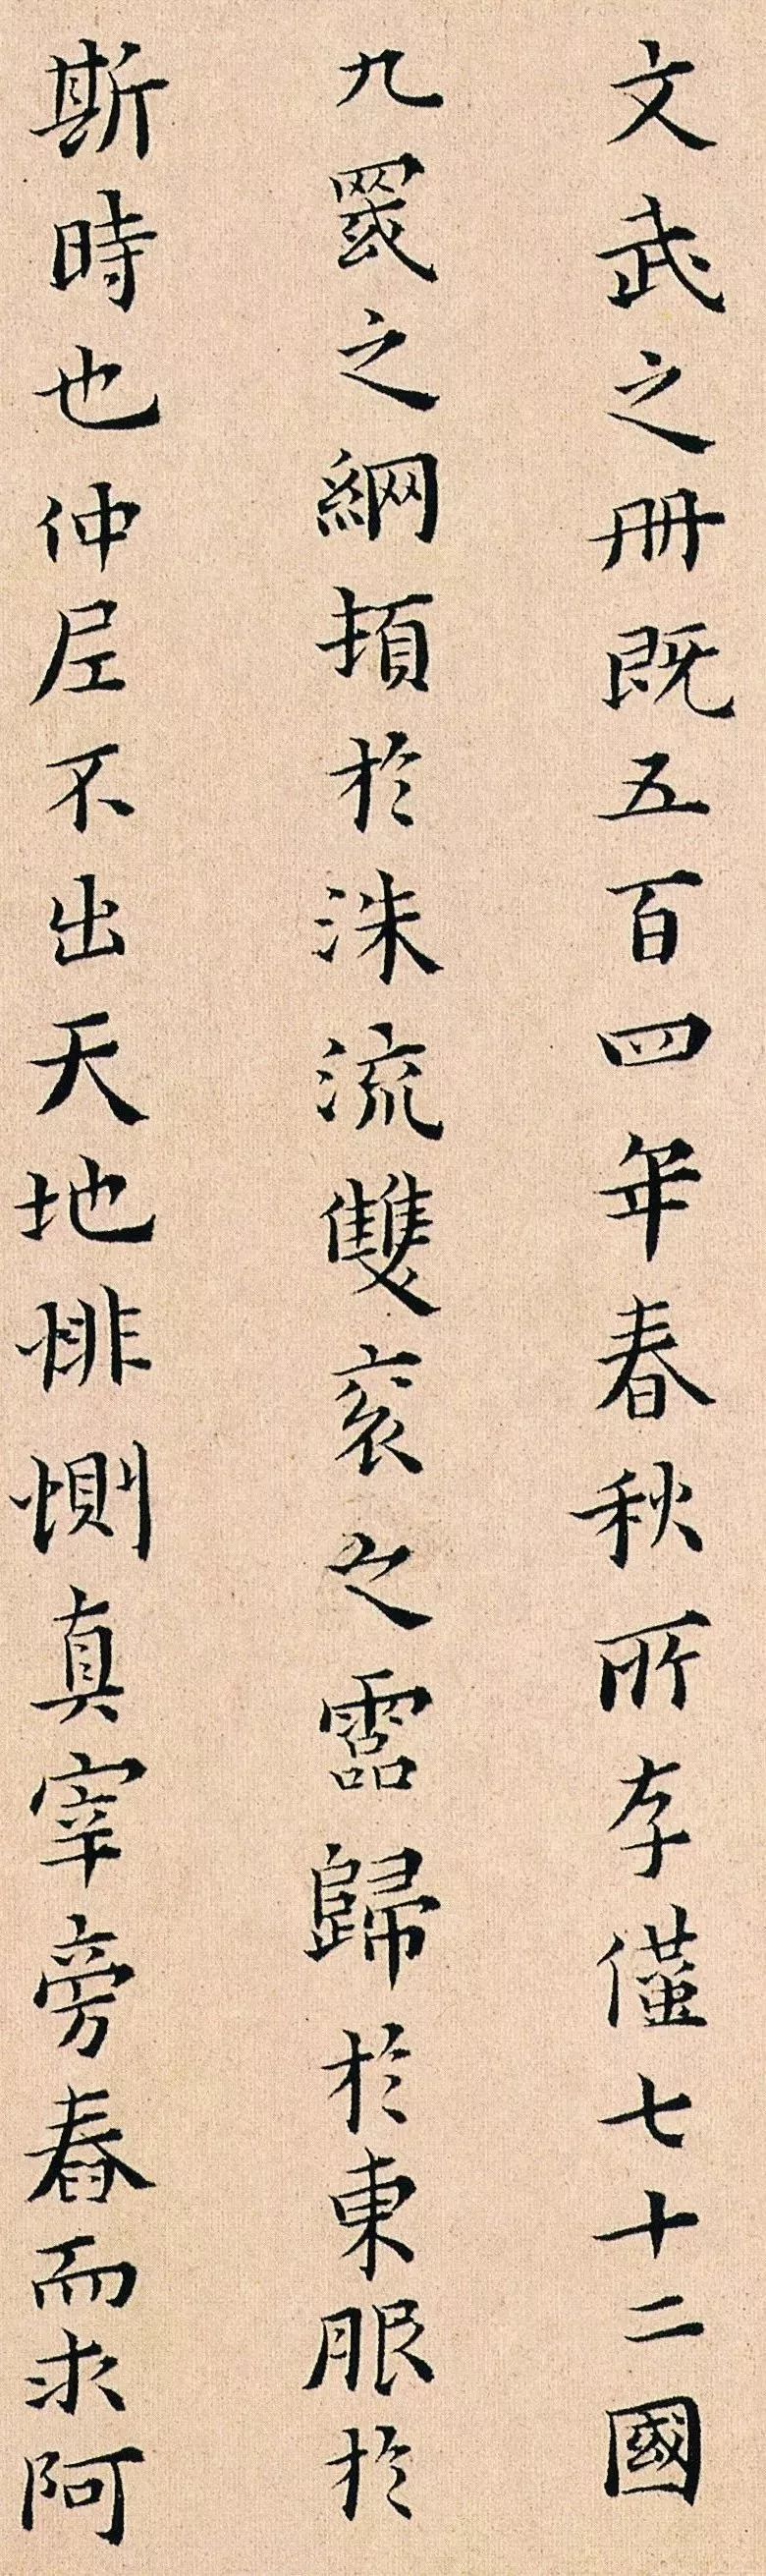 文武之册既五百四年春秋所存僅七十二國
九罭之綱頓於洙流雙亥之霝歸於東眼於
斯時也仲尼不出天地悱惻真宰旁舂而求阿